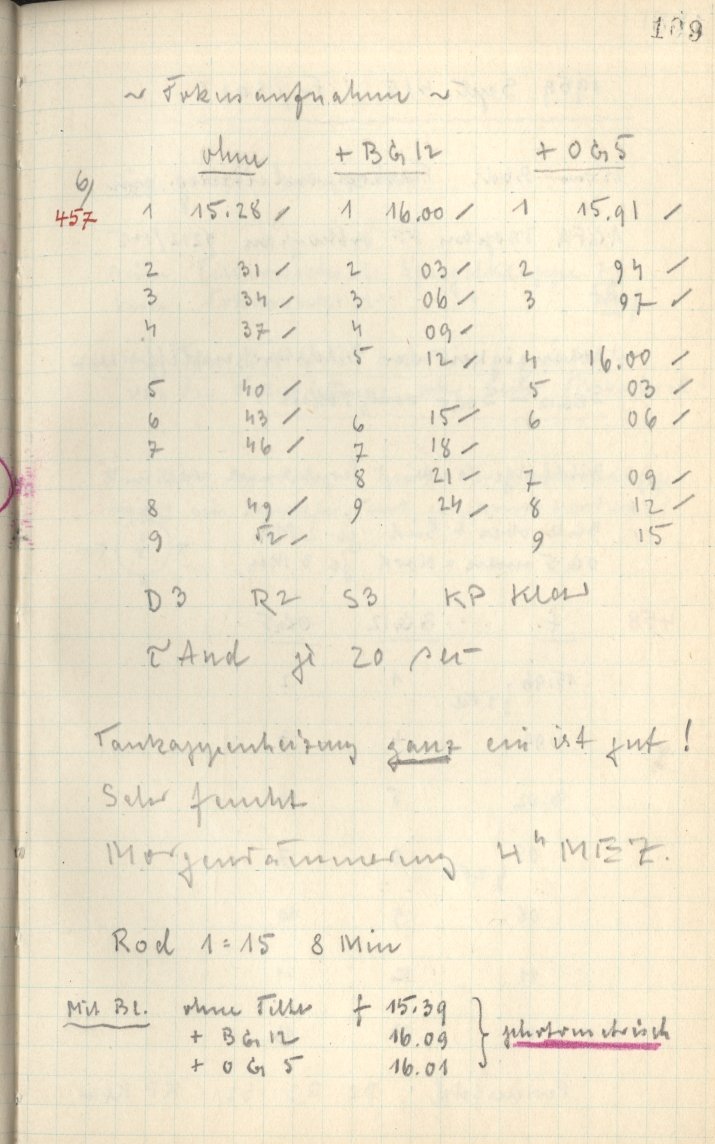 109
~ Fokusaufnahme ~
ohne + BG12 + OG5
6/
457 1 15.28 / 1 16.00 / 1 15.91 /
2 31 / 2 03 / 2 94 /
3 34 / 3 06 / 3 97 /
4 37 / 4 09 /
5 12 / 4 16.00 /
5 40 / 5 03 /
6 43 / 6 15 / 6 06 /
7 46 / 7 18 /
8 21 / 7 09 /
8 49 / 9 24 / 8 12 /
9 52 / 9 15
D3 R2 S3 KP Klar
τ And je 20 sec
Taukappenheizung ganz ein ist gut!
Sehr feucht
Morgendämmerung 4h MEZ.
Rod 1=15 8 Min
Mit Bl. ohne Filter f 15.39
+ BG12 16.09
+ OG 5 16.01
} photometrisch